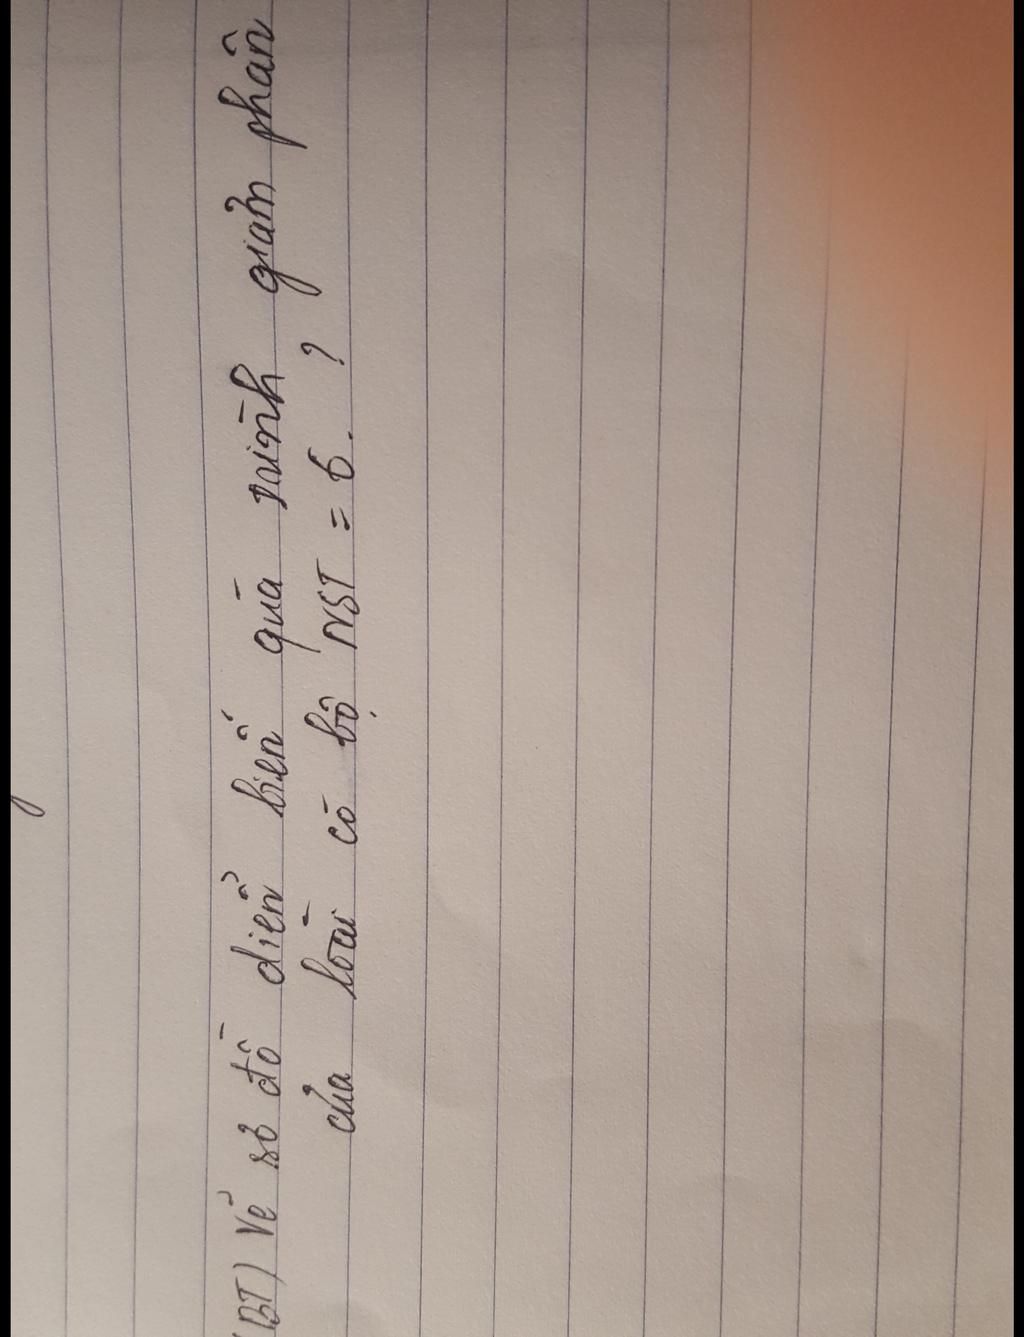 (BT) Vẽ sơ đồ diễn biến quá trình giảm phân
của loài có bộ NST = 6. ?